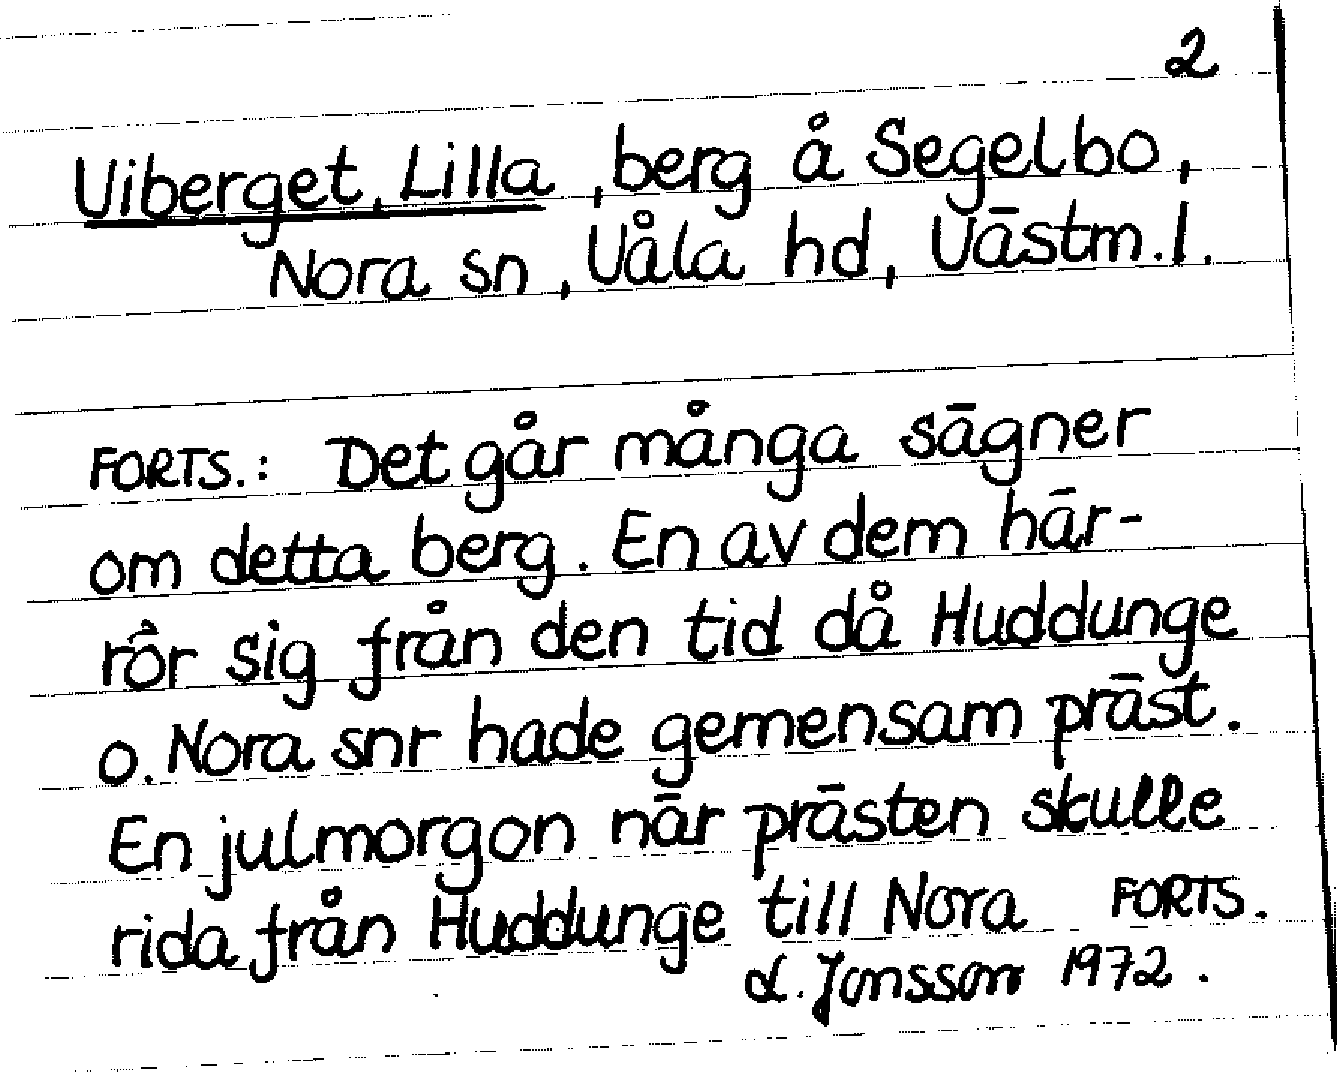 2
Viberget, Lilla, berg å Segelbo,
Nora sn, Våla hd, Västm. l.
FORTS.: Det går många sägner
om detta berg. En av dem här-
rör sig från den tid då Huddunge
o. Nora snr hade gemensam präst.
En julmorgon när prästen skulle
rida från Huddunge till Nora FORTS.
L. Jonsson 1972.